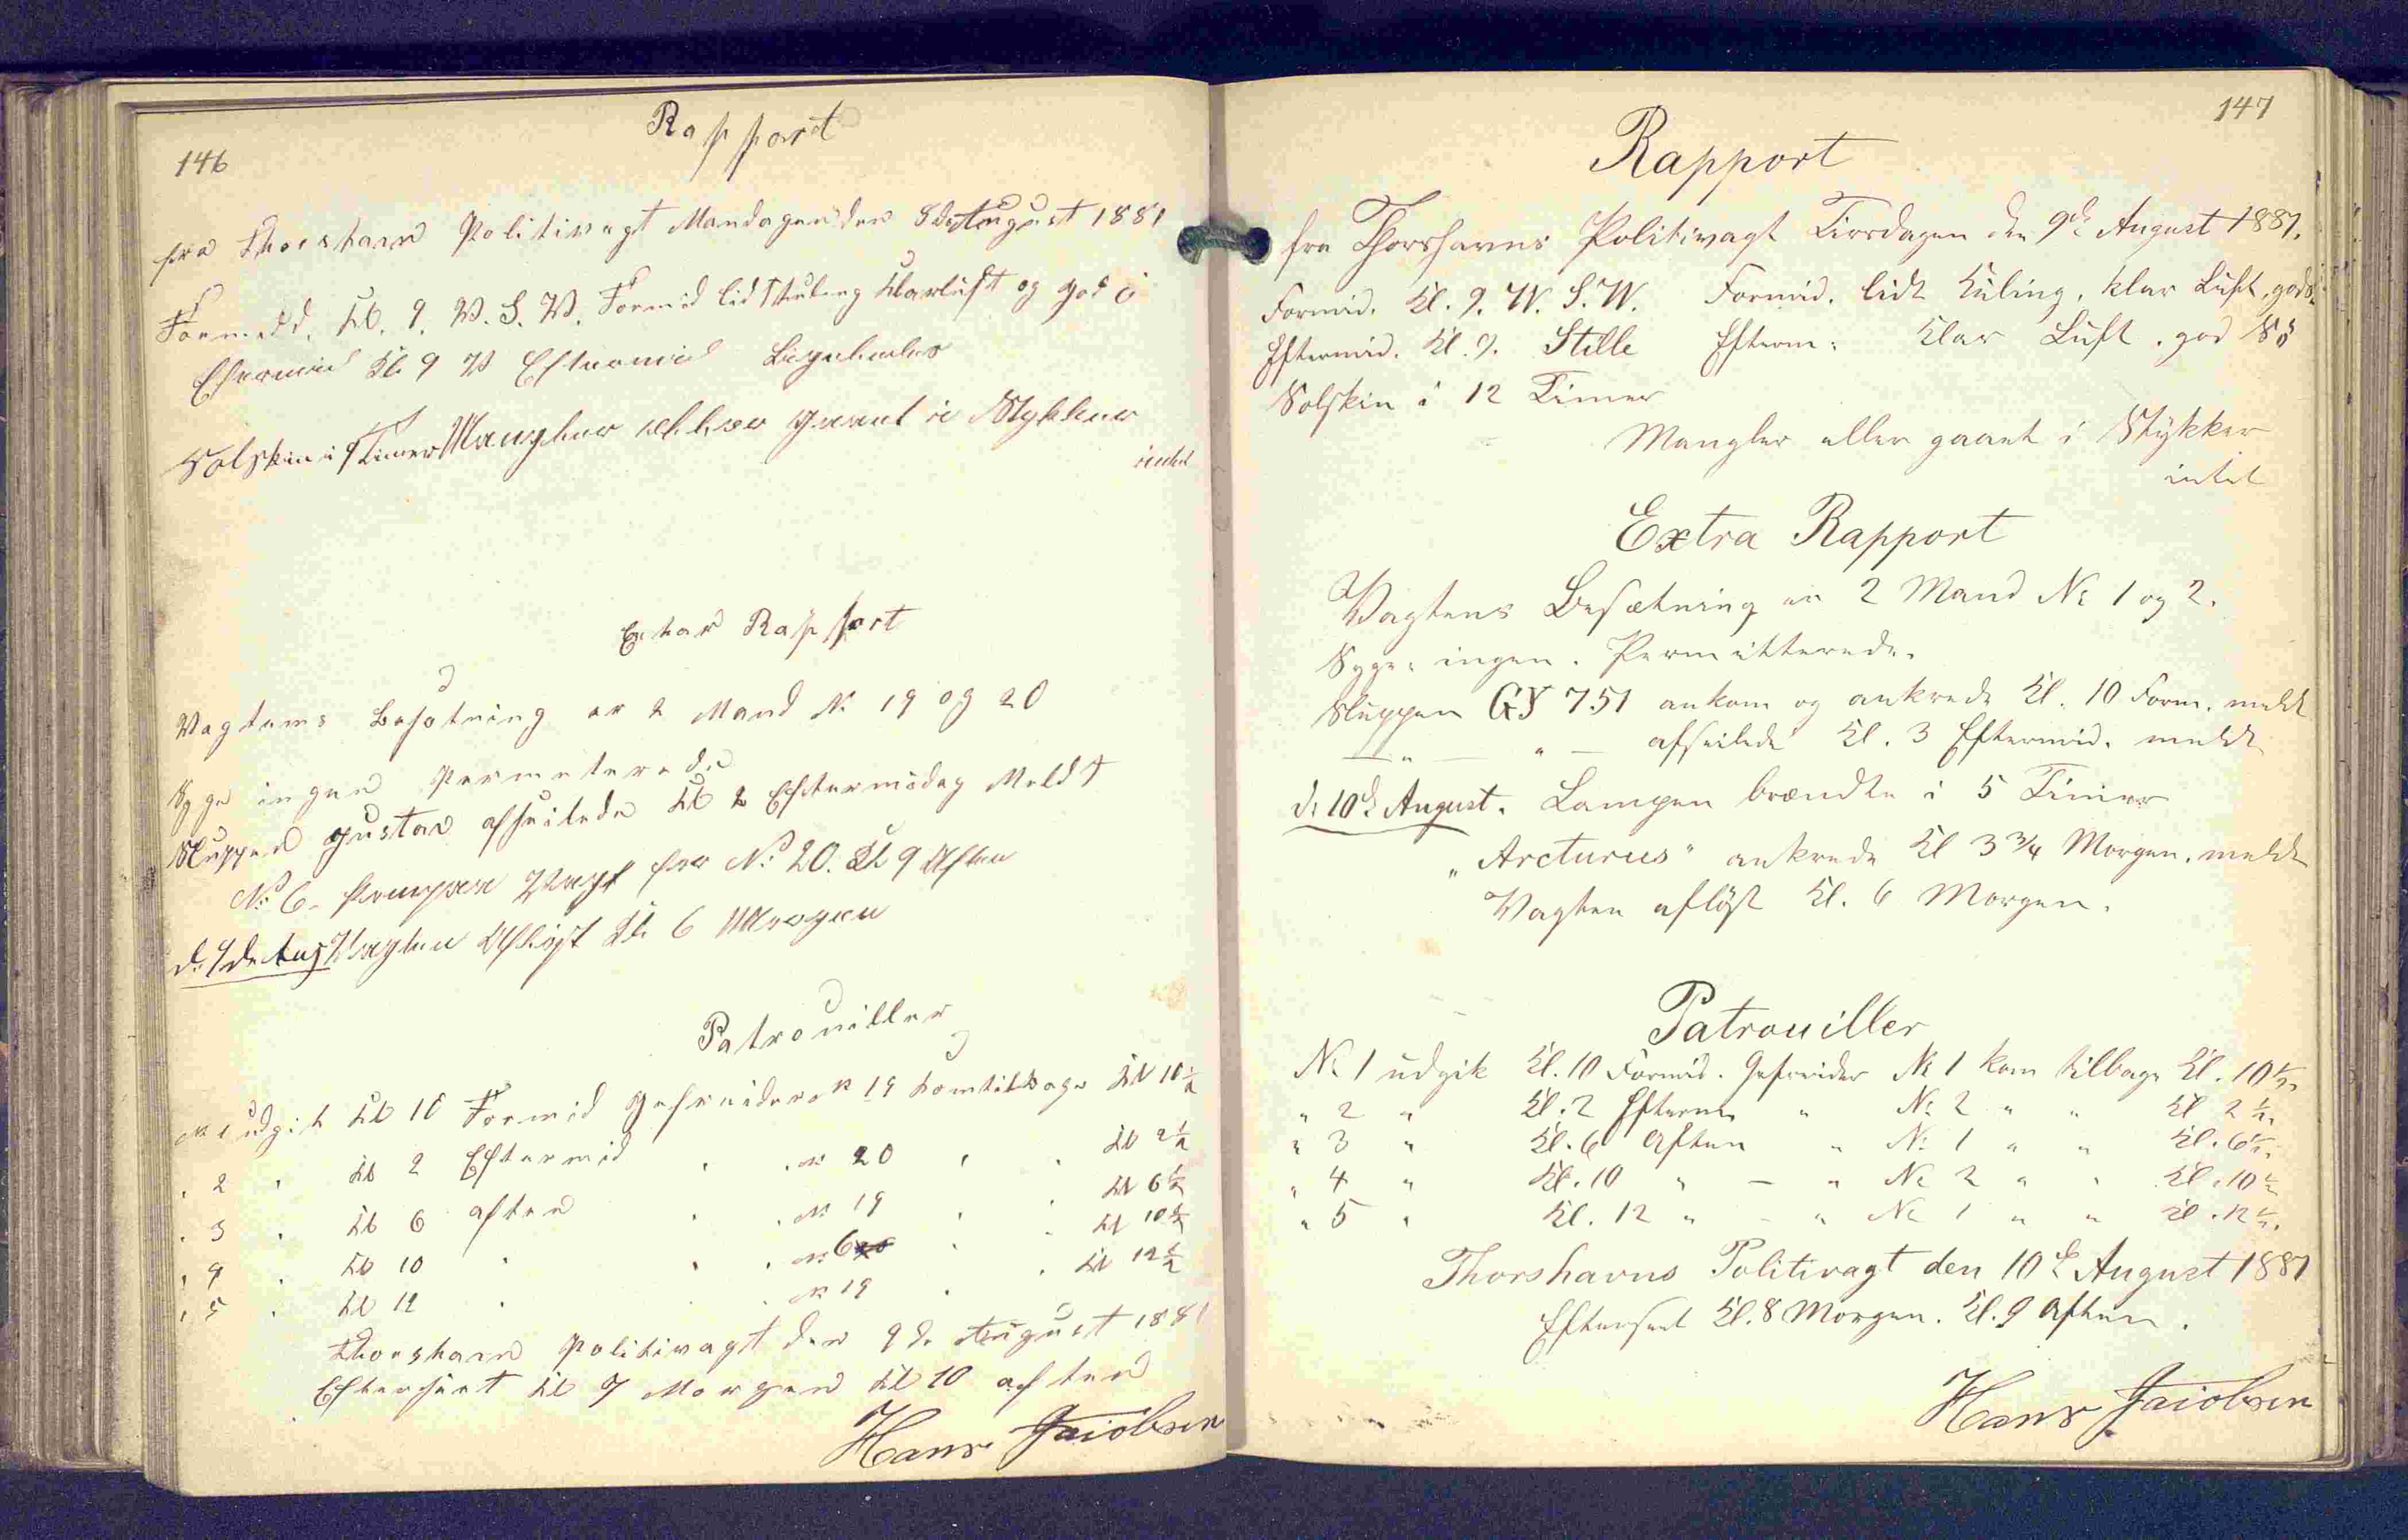 146
Rapport
fra Thorshavn Politivagt Mandagen den 8de August 1881
Formidd. Kl. 9. V. S. V. Formid lidt Kuling Klarluft og god
Eftermid Kl 9 V Eftermid Ligeledes
Solskin i 9 Timer Mangler eller gaaet i Stykker
intet
Extar Rapport
Vagtens Besætning er 2 Mand N: 19 og 20
Syge ingen Permeterede
Sluppen Gustav afseilede Kl 2 Eftermidag Meldt
N: 6. Vagt for N: 20. Kl 9 Aften
d: 9de Aug Vagten Afløst Kl 6 Morgen
Patrouiller
N: 1 udgik Kl 10 Formid Gefreider N 19 kom tilbage Kl 10 1/2
" 2 " Kl 2 Eftermid " " N: 20 " " Kl 2 1/2
" 3 " Kl 6 aften " " N: 19 " " Kl 6 1/2
" 4 " Kl 10 " " " N: 6 " " Kl 10 1/2
" 5 " Kl 12 " " N: 19 " " Kl 12 1/2
Thorshavn Politivagt den 9de August 1881
Efterseet Kl 7 Morgen Kl 10 aften
Hans Jacobsen
147
Rapport
fra Thorshavns Politivagt Tirsdagen den 9de August 1881.
Formid. Kl. 9. V. S. V. Formid. lidt Kuling, klar Luft, god
Eftermid. Kl. 9. Stille Efterm: Klar Luft, god Sø
Solskin i 12 Timer
Mangler eller gaaet i Stykker
intet
Extra Rapport
Vagtens Besætning er 2 Mand N: 1 og 2.
Syge: ingen. Permitterede.
Sluppen GY 751 ankom og ankrede Kl. 10 Form. meldt
— " — " — afseilede Kl. 3 Eftermid. meldt
d: 10de August. Lampen brændte i 5 Timer
"Arcturus" ankrede Kl 3 3/4 Morgen. meldt
Vagten afløst Kl. 6 Morgen.
Patrouiller
N: 1 udgik Kl. 10 Formid. Gefreider N: 1 kom tilbage Kl. 10 1/2
" 2 " Kl. 2 Efterm " N: 2 " " Kl 2 1/2
" 3 " Kl. 6 Aften " N: 1 " " Kl. 6 1/2
" 4 " Kl. 10 " — " N: 2 " " Kl. 10 1/2
" 5 " Kl. 12 " - " N: 1 " " Kl. 12 1/2
Thorshavns Politivagt den 10de August 1881
Efterseet Kl. 8 Morgen. Kl. 9 Aften.
Hans Jacobsen